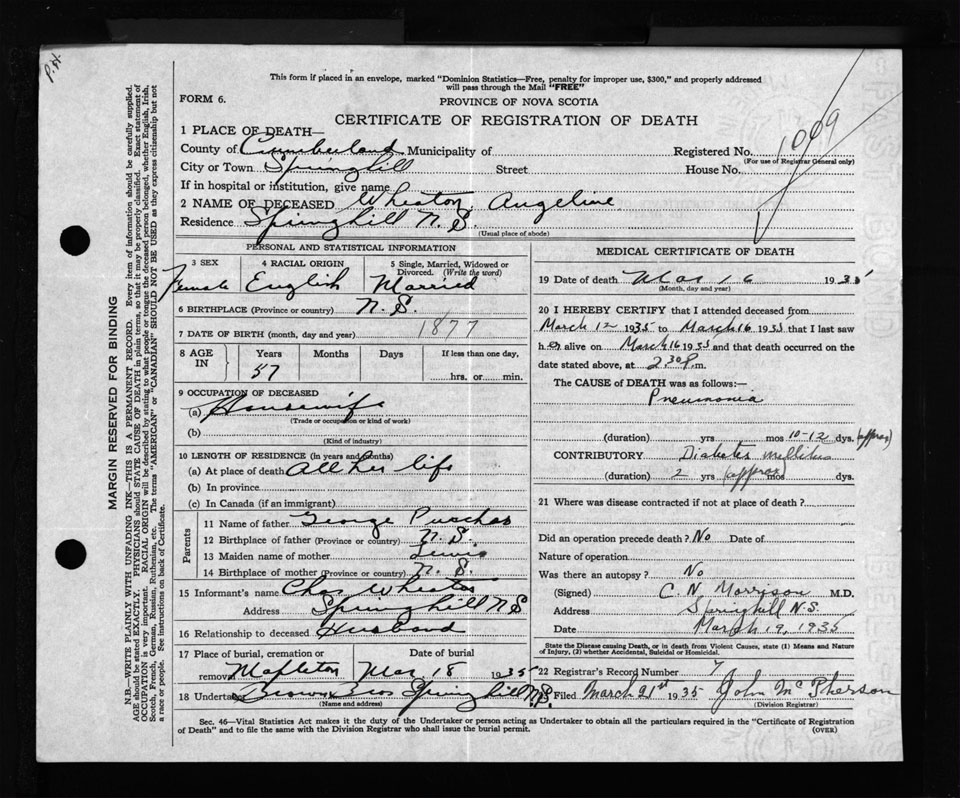 P.H.
This form if placed in an envelope, marked "Dominion Statistics—Free, penalty for improper use, $300," and properly addressed
will pass through the Mail "FREE"
FORM 6.
PROVINCE OF NOVA SCOTIA
CERTIFICATE OF REGISTRATION OF DEATH
1 PLACE OF DEATH—
County of Cumberland Municipality of Registered No. 1099
(For use of Registrar General only)
City or Town Springhill Street House No.
If in hospital or institution, give name
2 NAME OF DECEASED Wheaton, Angeline
Residence Springhill N.S.
(Usual place of abode)
PERSONAL AND STATISTICAL INFORMATION
3 SEX 4 RACIAL ORIGIN 5 Single, Married, Widowed or
Divorced. (Write the word)
Female English Married
6 BIRTHPLACE (Province or country) N.S.
7 DATE OF BIRTH (month, day and year) 1877
8 AGE IN Years Months Days If less than one day,
57 hrs. or min.
9 OCCUPATION OF DECEASED
(a) Housewife
(Trade or occupation or kind of work)
(b)
(Kind of industry)
10 LENGTH OF RESIDENCE (in years and months)
(a) At place of death All her life
(b) In province
(c) In Canada (if an immigrant)
Parents
11 Name of father George
12 Birthplace of father (Province or country) N.S.
13 Maiden name of mother Lewis
14 Birthplace of mother (Province or country) N.S.
15 Informant's name Chas Wheaton
Address Springhill N.S
16 Relationship to deceased Husband
17 Place of burial, cremation or Date of burial
removal Mapleton Mar 18 1935
18 Undertaker Brown Bros Springhill N.S.
(Name and address)
MEDICAL CERTIFICATE OF DEATH
19 Date of death Mar 16 1935
(Month, day and year)
20 I HEREBY CERTIFY that I attended deceased from
March 12 1935 to March 16 1935 that I last saw
her alive on March 16 1935 and that death occurred on the
date stated above, at 2.30 P. m.
The CAUSE of DEATH was as follows:—
Pneumonia
(duration) yrs mos 10-12 dys. (approx)
CONTRIBUTORY Diabetes mellitus
(duration) 2 yrs (approx) mos dys.
21 Where was disease contracted if not at place of death?
Did an operation precede death? No Date of
Nature of operation
Was there an autopsy? No
(Signed) C. N. Morrison M.D.
Address Springhill N.S.
Date March 19, 1935
State the Disease causing Death, or in death from Violent Causes, state (1) Means and Nature
of Injury, (2) whether Accidental, Suicidal or Homicidal.
22 Registrar's Record Number 7
Filed March 21st 1935 John McPherson
(Division Registrar)
Sec. 46—Vital Statistics Act makes it the duty of the Undertaker or person acting as Undertaker to obtain all the particulars required in the "Certificate of Registration
of Death" and to file the same with the Division Registrar who shall issue the burial permit.
(OVER)
MARGIN RESERVED FOR BINDING
N.B.—WRITE PLAINLY WITH UNFADING INK—THIS IS A PERMANENT RECORD. Every item of information should be carefully supplied.
AGE should be stated EXACTLY. PHYSICIANS should STATE CAUSE OF DEATH in plain terms, so that it may be properly classified. Exact statement of
OCCUPATION is very important. RACIAL ORIGIN will be described by stating to what people or tongue the deceased person belonged, whether English, Irish,
Scotch, French, German, Russian, Ruthenian, etc. The terms "AMERICAN" or "CANADIAN" SHOULD NOT BE USED as they express citizenship but not
a race or people. See instructions on back of Certificate.